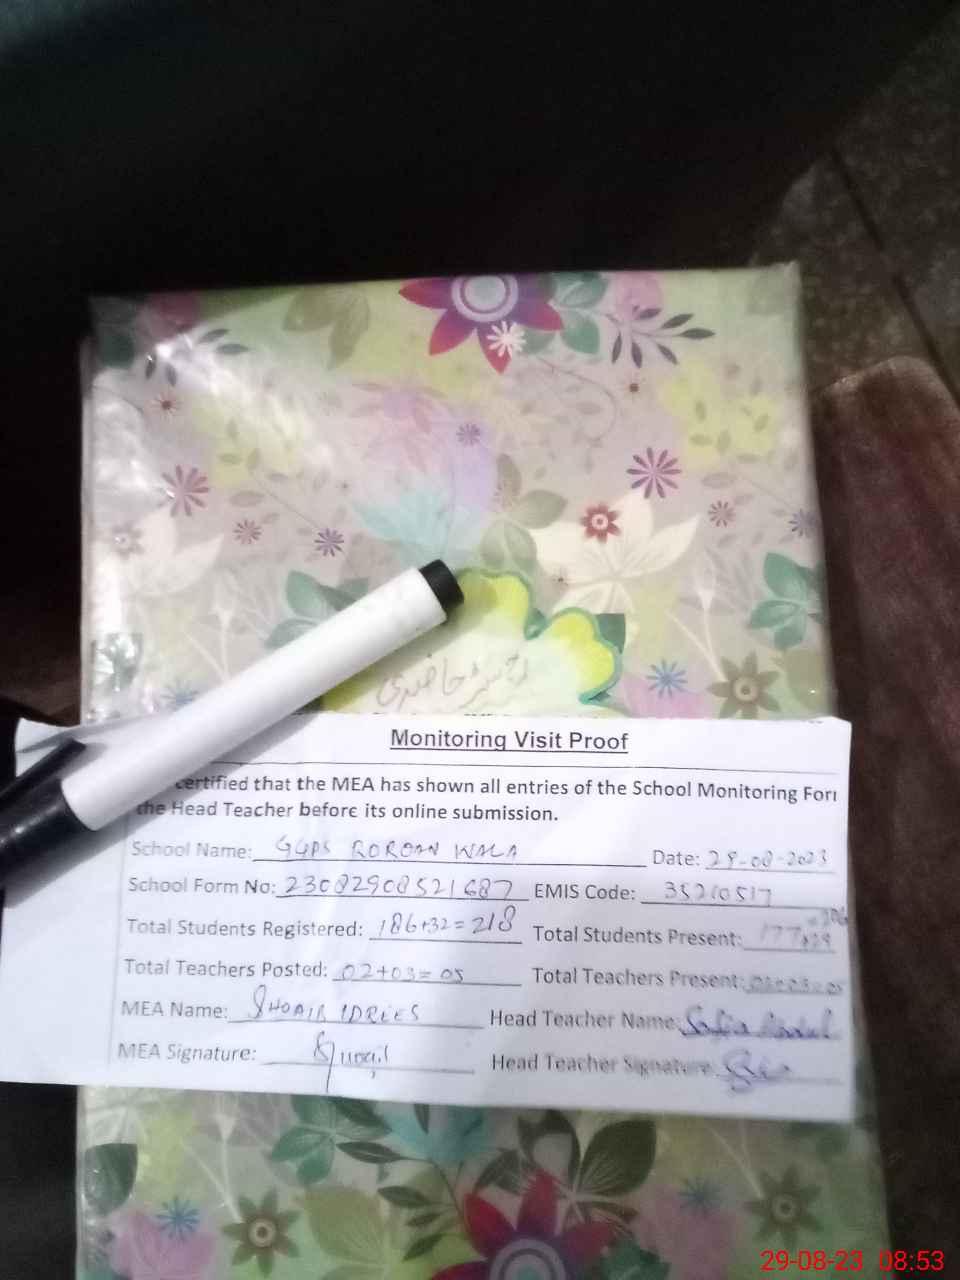 حاضری
Monitoring Visit Proof
certified that the MEA has shown all entries of the School Monitoring Form
the Head Teacher before its online submission.
School Name: GGPS ROROAN WALA Date: 29-08-2023
School Form No: 23082908521687 EMIS Code: 35210517
Total Students Registered: 186+32=218 Total Students Present: 177+29 =206
Total Teachers Posted: 02+03=05 Total Teachers Present: 02+03=05
MEA Name: SHOAIB IDREES Head Teacher Name: Safia
MEA Signature: Shoaib Head Teacher Signature:
29-08-23 08:53